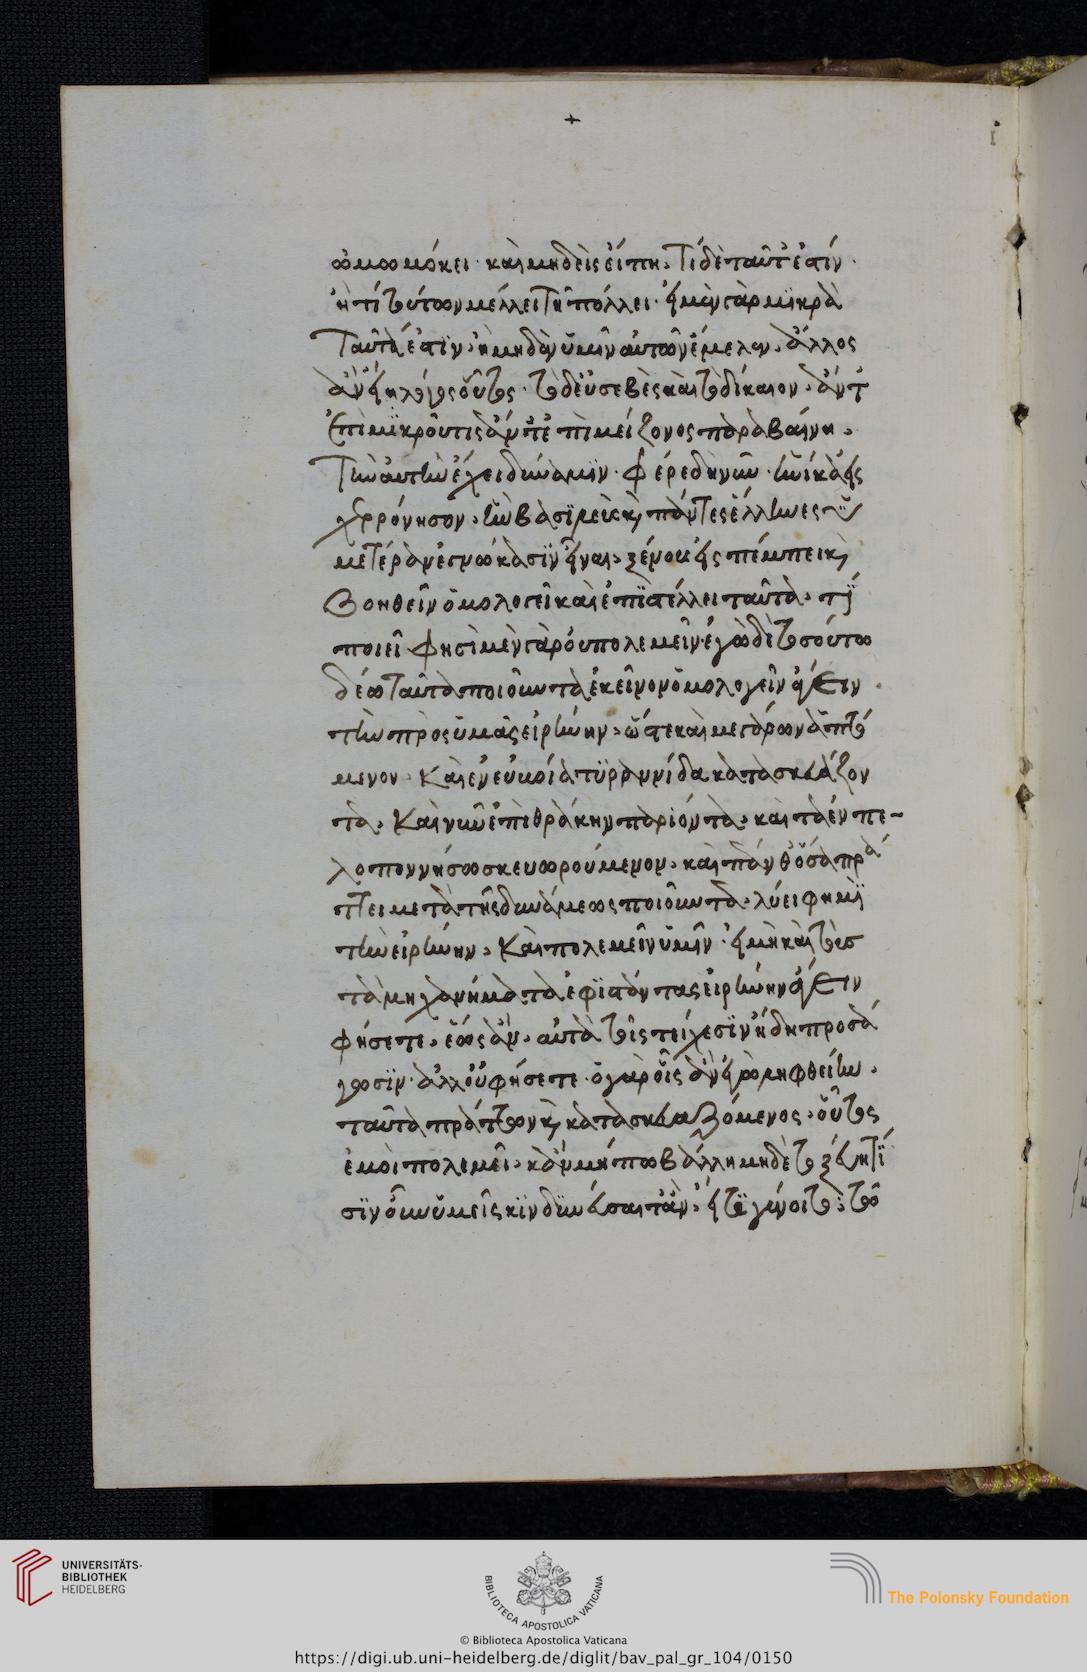 +
ὀμωμόκει· καὶ μηδεὶς εἴπῃ· τί δὲ ταῦτ' ἐστίν·
ἢ τί τούτων μέλλει τῇ πόλλει· εἰ μὲν γὰρ μϊκρὰ
ταῦτα ἐστϊν· ἢ μηδὲν ὑμῖν αὐτῶν ἔμελεν· ἄλλος
ἂν εἴη λόγος οὗτος· τὸ δ' εὐσεβὲς καὶ τὸ δίκαιον· ἄν τ'
ἐπὶ μϊκροῦ τις ἄν τε ἐπὶ μείζονος παραβαίνῃ·
τὴν αὐτὴν ἔχει δύναμϊν· φέρε δὴ νῦν· ἡνίκα εἰς
χερρόνησον· ἣν βασϊλεὺς καὶ πάντες ἕλληνες ὑ
μετέραν ἐγνώκασϊν εἶναι· ξένους εἰς πέμπει καὶ
βοηθεῖν ὁμολογεῖ καὶ ἐπϊστέλλει ταῦτα· τί
ποιεῖ φησὶ μὲν γὰρ οὐ πολεμεῖν· ἐγὼ δὲ τοσούτω
δέω ταῦτα ποιοῦντα ἐκεῖνον ὁμολογεῖν ἄγειν
τὴν πρὸς ὑμᾶς εἰρήνην· ὥστε καὶ μεγάρων ἁπτό
μενον· καὶ ἐν εὐβοία τϋραννίδα κατασκευάζον
τα· καὶ νῦν ἐπὶ θράκην παριόντα· καὶ τὰ ἐν πε-
λοποννήσω σκευωρούμενον· καὶ πάνθ' ὅσα πρά
ττει μετὰ τῆς δυνάμεως ποιοῦντα· λύειν φημϊ
τὴν εἰρήνην· καὶ πολεμεῖν ὑμῖν· εἰ μὴ καὶ τοὺς
τὰ μηχανήματα ἐφϊστάντας εἰρήνην ἄγειν
φήσετε· ἕως ἂν· αὐτὰ τοῖς τείχεσϊν ἤδη προσά
γωσϊν· ἀλλ' οὐ φήσετε· ὁ γὰρ οἷς ἂν ἐγὼ ληφθείην·
ταῦτα πράττων καὶ κατασκευαζόμενος· οὗτος
ἐμοὶ πολεμεῖ· κἂν μήπω βάλλη μηδὲ τοξεύη τί
σϊν οὖν ὑμεῖς κϊνδϋνεύσαιτ' ἄν· εἴ τϊ γένοιτο; τῶ
UNIVERSITÄTS-
BIBLIOTHEK
HEIDELBERG
BIBLIOTECA APOSTOLICA VATICANA
The Polonsky Foundation
© Biblioteca Apostolica Vaticana
https://digi.ub.uni-heidelberg.de/diglit/bav_pal_gr_104/0150